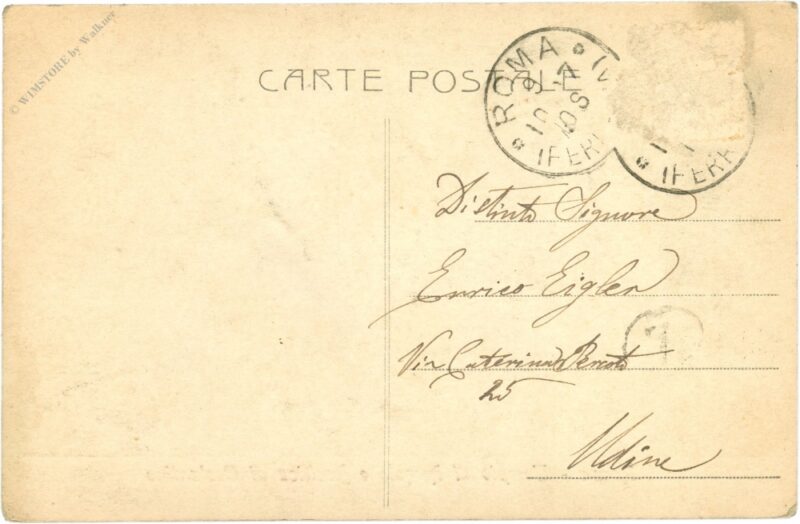 © WIMSTORE by Walkner
CARTE POSTALE
ROMA
Distinto Signore
Enrico Eigler
Via Caterina Percoto
25
Udine
1